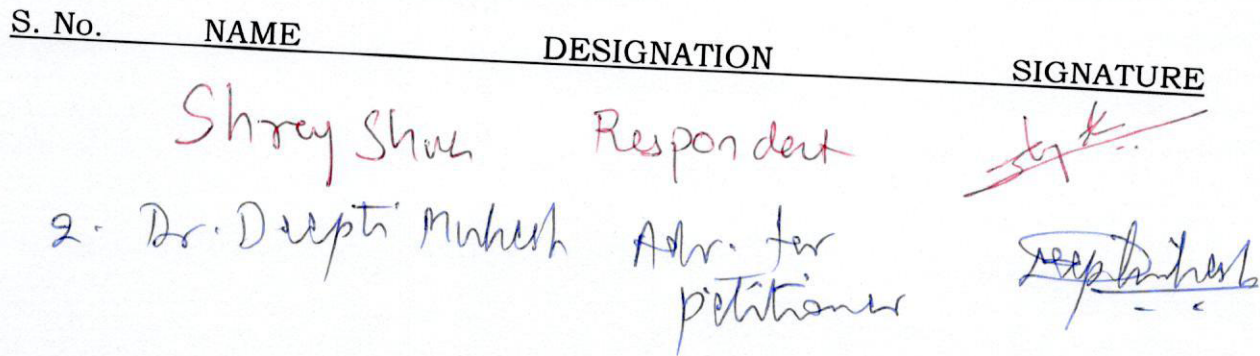 S. No. NAME DESIGNATION SIGNATURE
Shrey Shah Respondent
2. Dr. Deepti Mukesh Adv. for
petitioner